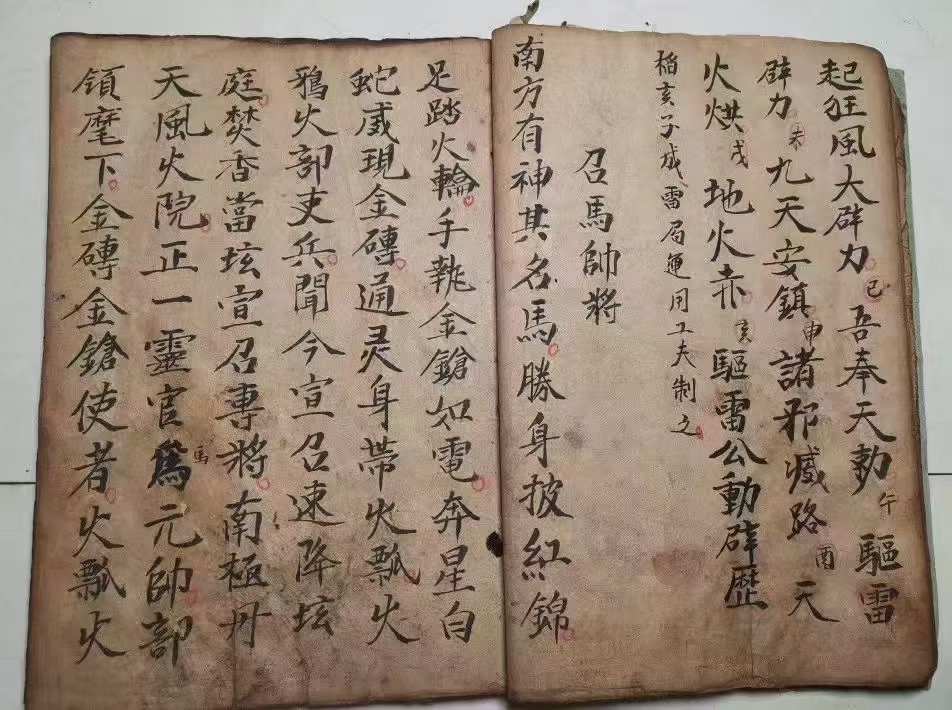 起狂風大辟力巳吾奉天勅午驅雷
辟力未九天安鎮申諸邪藏路酉天
火烘戌地火赤亥驅雷公動辟歷
稻亥子成雷局運用工夫制之
召馬帥將
南方有神其名馬勝身披紅錦
足踏火輪手執金鎗如電奔星白
蛇威現金磚通灵身帶火瓢火
鴉火部吏兵聞今宣召速降坛
庭焚香當坛宣召專將南極丹
天風火院正一靈官馬元帥部
領麾下金磚金鎗使者火瓢火